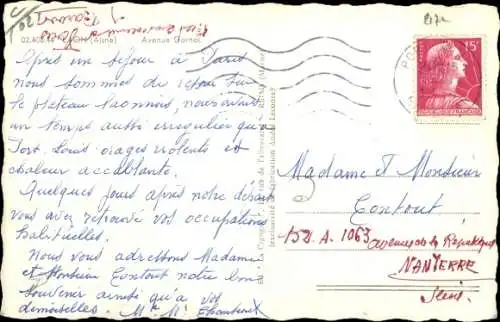 02.408.
(Aisne) Avenue Carnot
Après un séjour à Paris
nous sommes de retour sur
le plateau Laonnois, nous avons
un temps aussi irrégulier qu'à
Fort-Louis orages violents et
chaleur accablante.
Quelques jours après notre départ
vous avez retrouvé vos occupations
habituelles.
Nous vous adressons Madame
et Monsieur Contout notre bon
souvenir ainsi qu'à vos
demoiselles. Mr Me
15F
POSTES
Madame et Monsieur
Contout
152 A. 1063 avenue de la République
NANTERRE
Seine